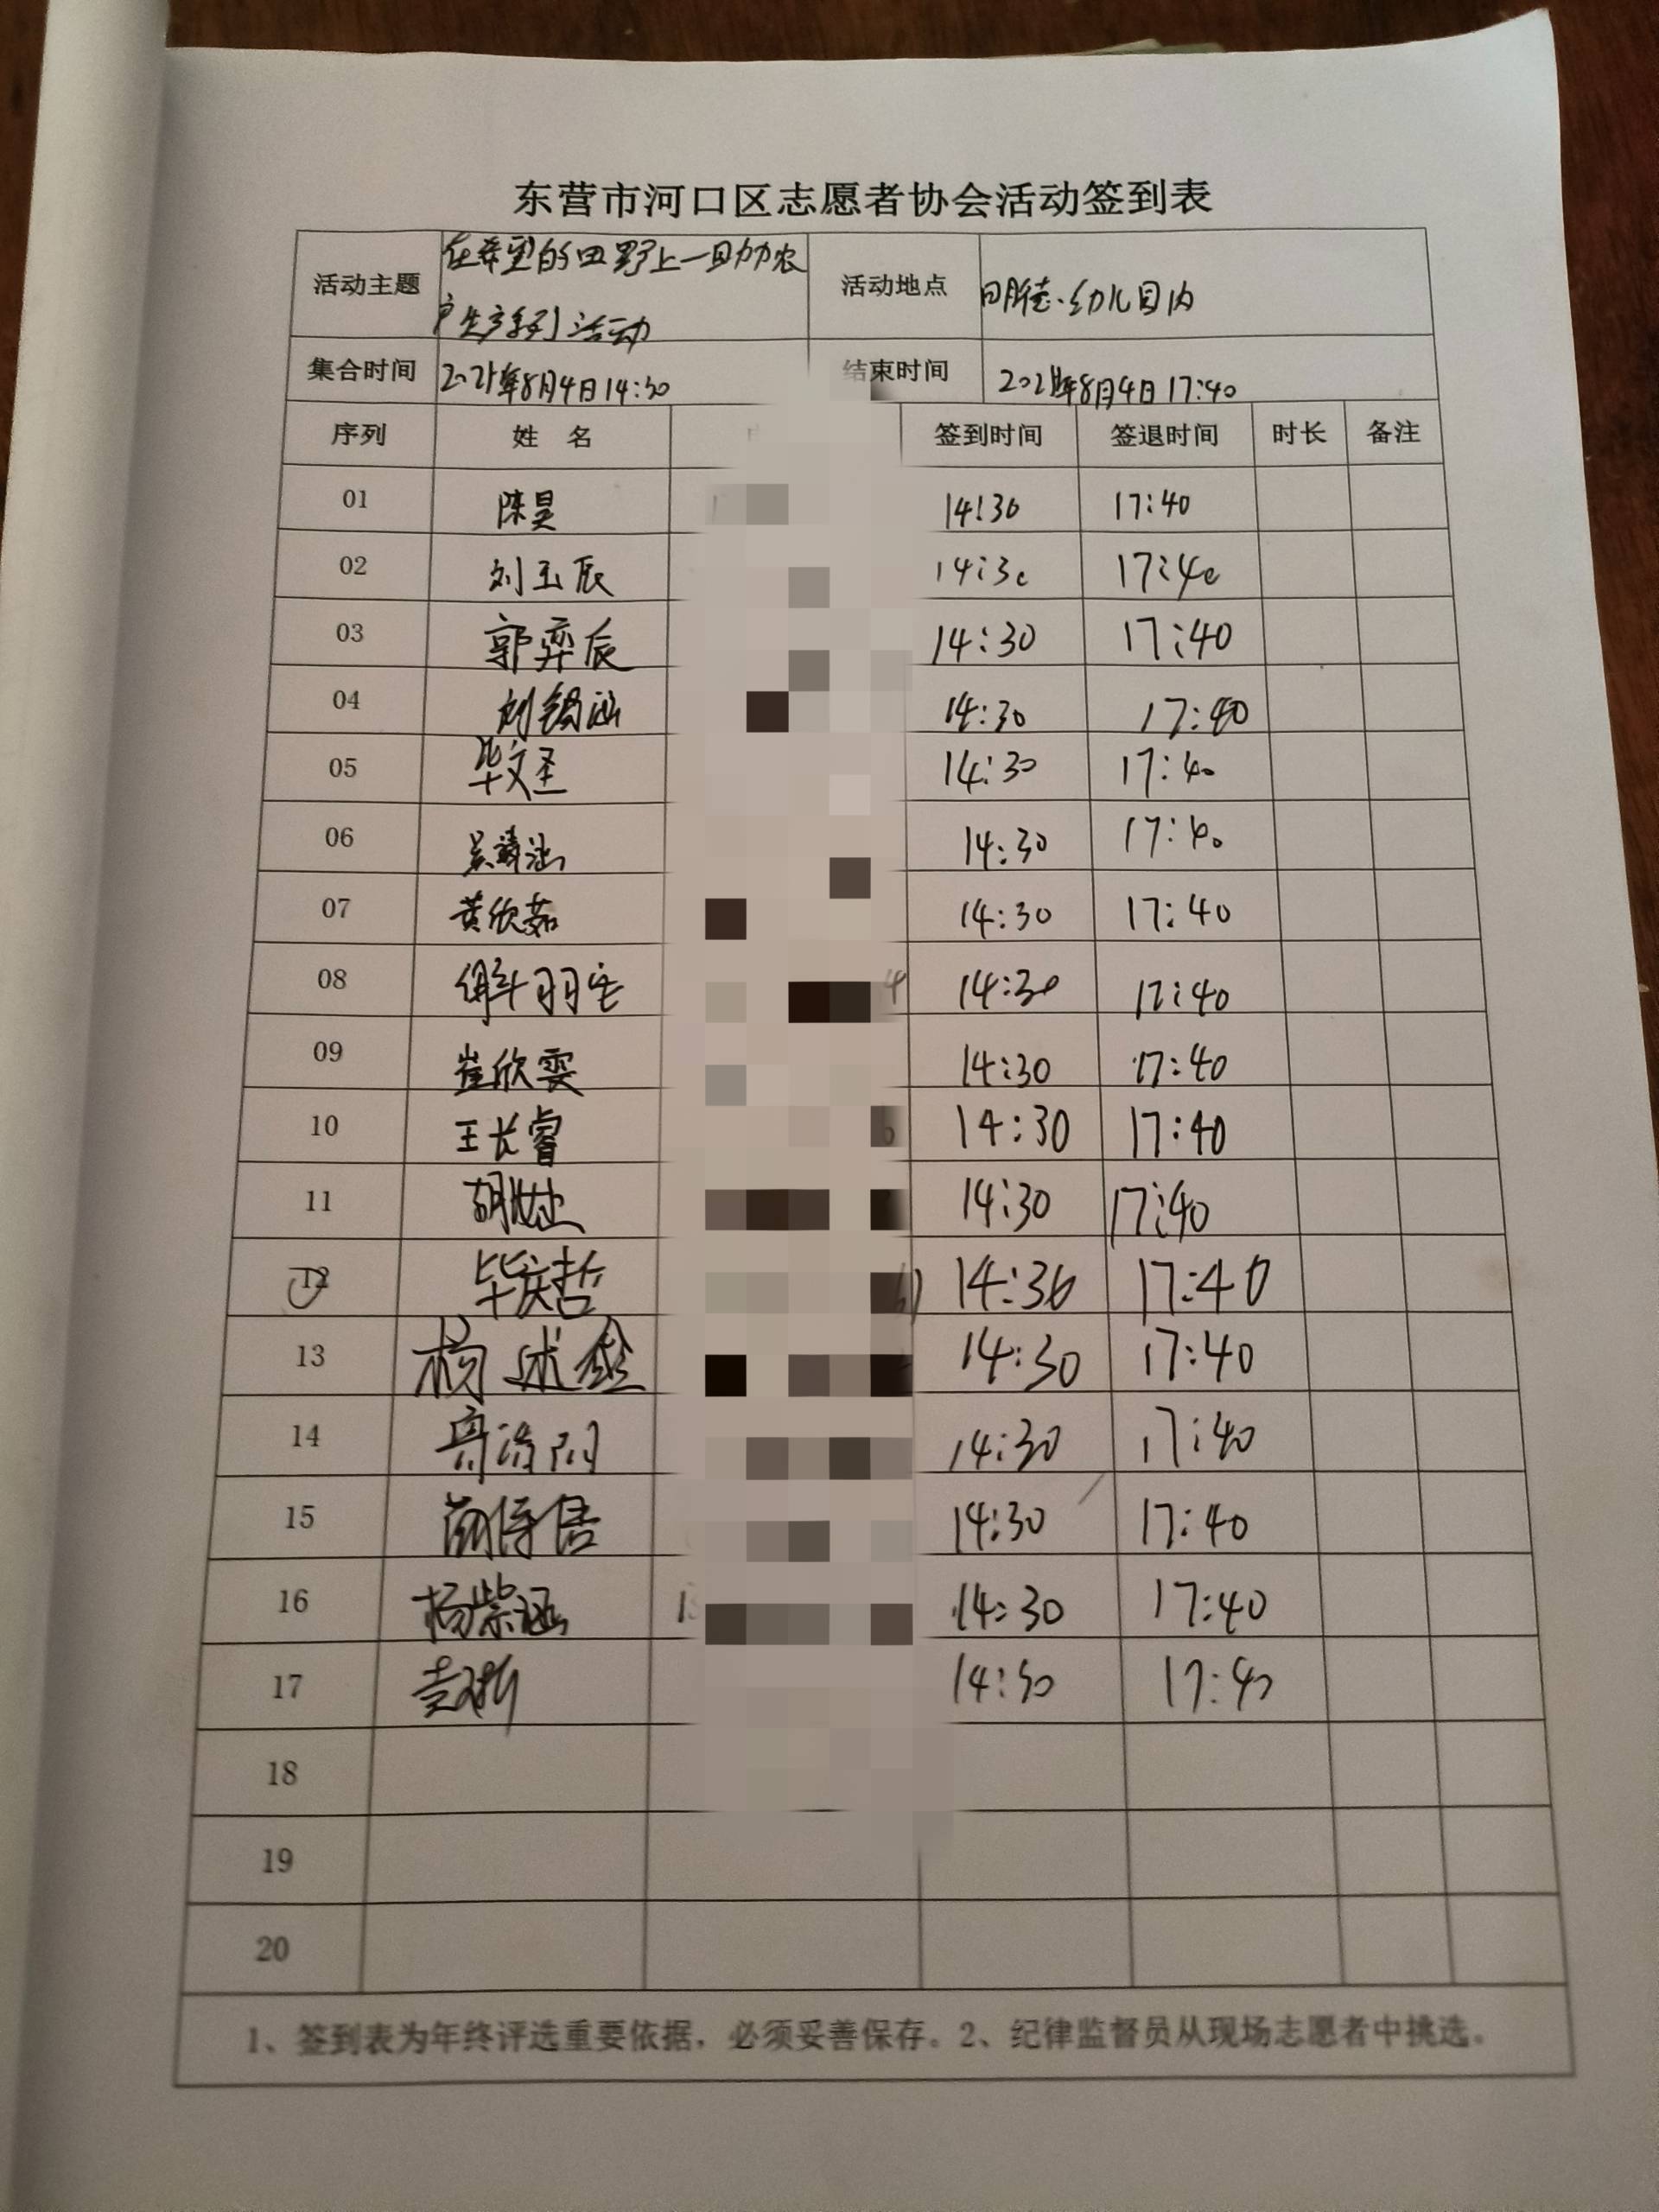 东营市河口区志愿者协会活动签到表
活动主题 在希望的田野上一助力农 活动地点 明德幼儿园内
户生产系列活动
集合时间 2021年8月4日14:30 结束时间 2021年8月4日17:40
序列 姓 名 签到时间 签退时间 时长 备注
01 陈昊 14:30 17:40
02 刘玉辰 14:30 17:40
03 郭弈辰 14:30 17:40
04 刘锡涵 14:30 17:40
05 毕文圣 14:30 17:40
06 14:30 17:40
07 黄欣茹 14:30 17:40
08 解羽宅 14:30 17:40
09 崔欣雯 14:30 17:40
10 王长睿 14:30 17:40
11 14:30 17:40
12 毕庆哲 14:30 17:40
13 14:30 17:40
14 14:30 17:40
15 14:30 17:40
16 杨紫涵 14:30 17:40
17 14:30 17:40
18
19
20
1、签到表为年终评选重要依据，必须妥善保存。2、纪律监督员从现场志愿者中挑选。